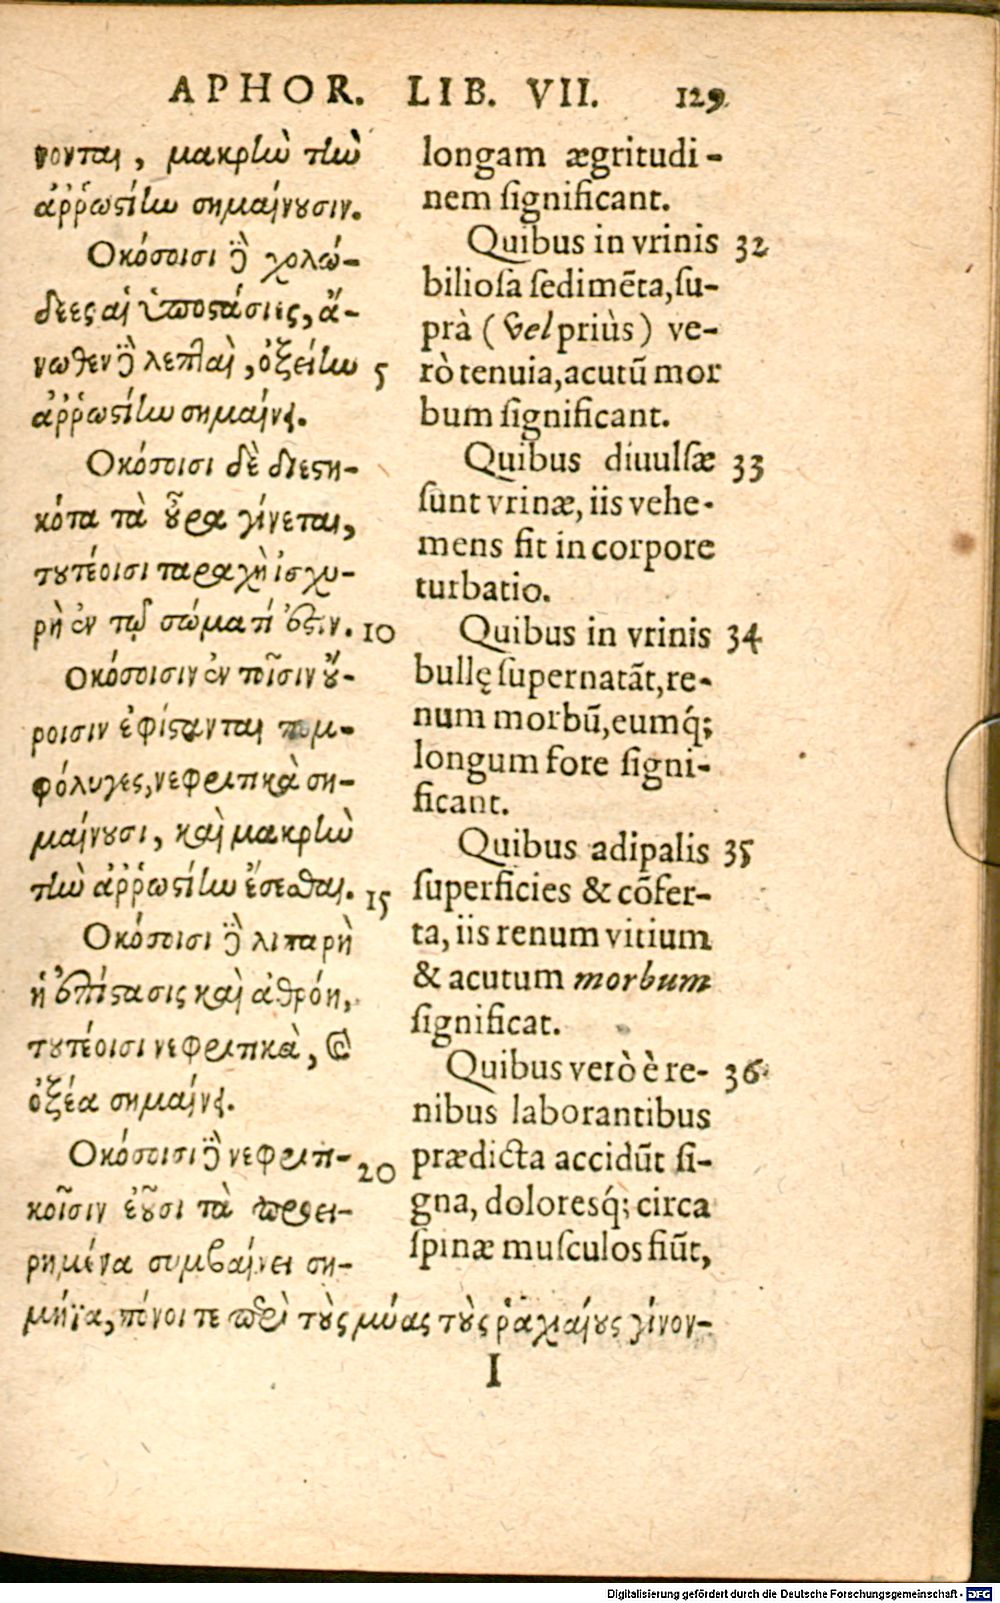 APHOR. LIB. VII. 129
νονται, μακρὴν τὴν
ἀῤῥωστίην σημαίνουσιν.
Οκόσοισι δὲ χολώ-
δεες αἱ ὑποστάσιες, ἄ-
νωθεν δὲ λεπταὶ, ὀξείην 5
ἀῤῥωστίην σημαίνει.
Οκόσοισι δὲ διεστη-
κότα τὰ οὖρα γίνεται,
τουτέοισι ταραχὴ ἰσχυ-
ρὴ ἐν τῷ σώματί ἐστιν. 10
Οκόσοισιν ἐν τοῖσιν οὔ-
ροισιν ἐφίστανται πομ-
φόλυγες, νεφριτικὰ ση-
μαίνουσι, καὶ μακρὴν
τὴν ἀῤῥωστίην ἔσεσθαι. 15
Οκόσοισι δὲ λιπαρὴ
ἡ ἐπίστασις καὶ ἀθρόη,
τουτέοισι νεφριτικὰ, καὶ
ὀξέα σημαίνει.
Οκόσοισι δὲ νεφριτι- 20
κοῖσιν ἐοῦσι τὰ προει-
ρημένα συμβαίνει ση-
μήϊα, πόνοι τε περὶ τοὺς μύας τοὺς ῥαχιαίους γίνον-
longam ægritudi-
nem ſignificant.
Quibus in vrinis 32
bilioſa ſedimẽta, ſu-
prà (vel priùs) ve-
rò tenuia, acutũ mor
bum ſignificant.
Quibus diuulſæ 33
ſunt vrinæ, iis vehe-
mens fit in corpore
turbatio.
Quibus in vrinis 34
bullę ſupernatãt, re-
num morbũ, eumq́;
longum fore ſigni-
ficant.
Quibus adipalis 35
ſuperficies & cõfer-
ta, iis renum vitium
& acutum morbum
ſignificat.
Quibus verò è re- 36
nibus laborantibus
prædicta accidũt ſi-
gna, doloresq́; circa
ſpinæ muſculos fiũt,
I
Digitalisierung gefördert durch die Deutsche Forschungsgemeinschaft - DFG